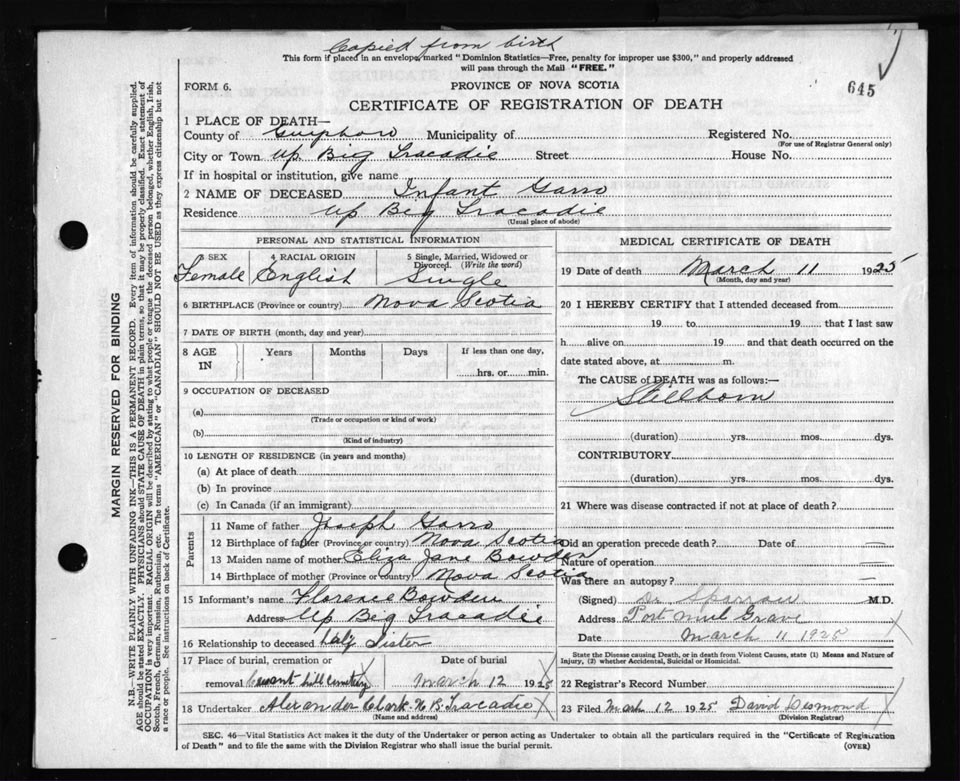 Copied from birth
This form if placed in an envelope, marked "Dominion Statistics—Free, penalty for improper use $300," and properly addressed
will pass through the Mail "FREE."
FORM 6.
PROVINCE OF NOVA SCOTIA
645
CERTIFICATE OF REGISTRATION OF DEATH
1 PLACE OF DEATH—
County of Guysboro Municipality of
Registered No.
(For use of Registrar General only)
City or Town Up Big Tracadie Street House No.
If in hospital or institution, give name
2 NAME OF DECEASED Infant Garro
Residence Up Big Tracadie
(Usual place of abode)
PERSONAL AND STATISTICAL INFORMATION
3 SEX 4 RACIAL ORIGIN 5 Single, Married, Widowed or Divorced. (Write the word)
Female English Single
6 BIRTHPLACE (Province or country) Nova Scotia
7 DATE OF BIRTH (month, day and year)
8 AGE IN Years Months Days If less than one day,
hrs. or min.
9 OCCUPATION OF DECEASED
(a)
(Trade or occupation or kind of work)
(b)
(Kind of industry)
10 LENGTH OF RESIDENCE (in years and months)
(a) At place of death
(b) In province
(c) In Canada (if an immigrant)
Parents
11 Name of father Joseph Garro
12 Birthplace of father (Province or country) Nova Scotia
13 Maiden name of mother Eliza Jane Bowden
14 Birthplace of mother (Province or country) Nova Scotia
15 Informant's name Florence Bowden
Address Up Big Tracadie
16 Relationship to deceased Sister
17 Place of burial, cremation or removal Date of burial
hill Cemetery March 12 1925
18 Undertaker Alexander Clark Tracadie
(Name and address)
MEDICAL CERTIFICATE OF DEATH
19 Date of death March 11 1925
(Month, day and year)
20 I HEREBY CERTIFY that I attended deceased from
19 to 19 that I last saw
h alive on 19 and that death occurred on the
date stated above, at m.
The CAUSE of DEATH was as follows:—
Stillborn
(duration) yrs. mos. dys.
CONTRIBUTORY
(duration) yrs. mos. dys.
21 Where was disease contracted if not at place of death?
Did an operation precede death? Date of
Nature of operation
Was there an autopsy?
(Signed) Dr Sparrow M.D.
Address Port
Date March 11 1925
State the Disease causing Death, or in death from Violent Causes, state (1) Means and Nature of
Injury, (2) whether Accidental, Suicidal or Homicidal.
22 Registrar's Record Number
23 Filed March 12 1925 David Desmond
(Division Registrar)
SEC. 46—Vital Statistics Act makes it the duty of the Undertaker or person acting as Undertaker to obtain all the particulars required in the "Certificate of Registration
of Death" and to file the same with the Division Registrar who shall issue the burial permit.
(OVER)
MARGIN RESERVED FOR BINDING
N.B.—WRITE PLAINLY WITH UNFADING INK—THIS IS A PERMANENT RECORD. Every item of information should be carefully supplied.
AGE should be stated EXACTLY. PHYSICIANS should STATE CAUSE OF DEATH in plain terms, so that it may be properly classified. Exact statement of
OCCUPATION is very important. RACIAL ORIGIN will be described by stating to what people or tongue the deceased person belonged, whether English, Irish,
Scotch, French, German, Russian, Ruthenian, etc. The terms "AMERICAN" or "CANADIAN" SHOULD NOT BE USED as they express citizenship but not
a race or people. See instructions on back of Certificate.